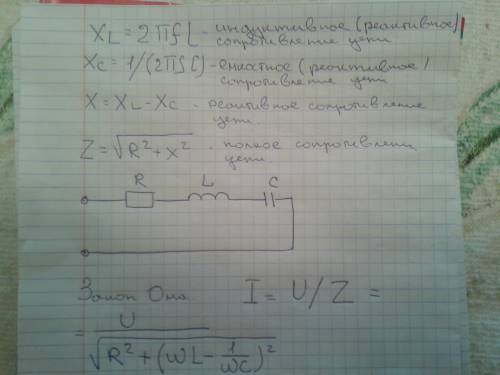 X_L = 2πfL - индуктивное (реактивное)
сопротивление цепи
X_C = 1/(2πfC) - емкостное (реактивное)
сопротивление цепи
X = X_L - X_C - реактивное сопротивление
цепи.
Z = √(R² + x²) - полное сопротивлени
цепи.
R L C
Закон Ома I = U/Z =
= U / √(R² + (ωL - 1/ωC)²)